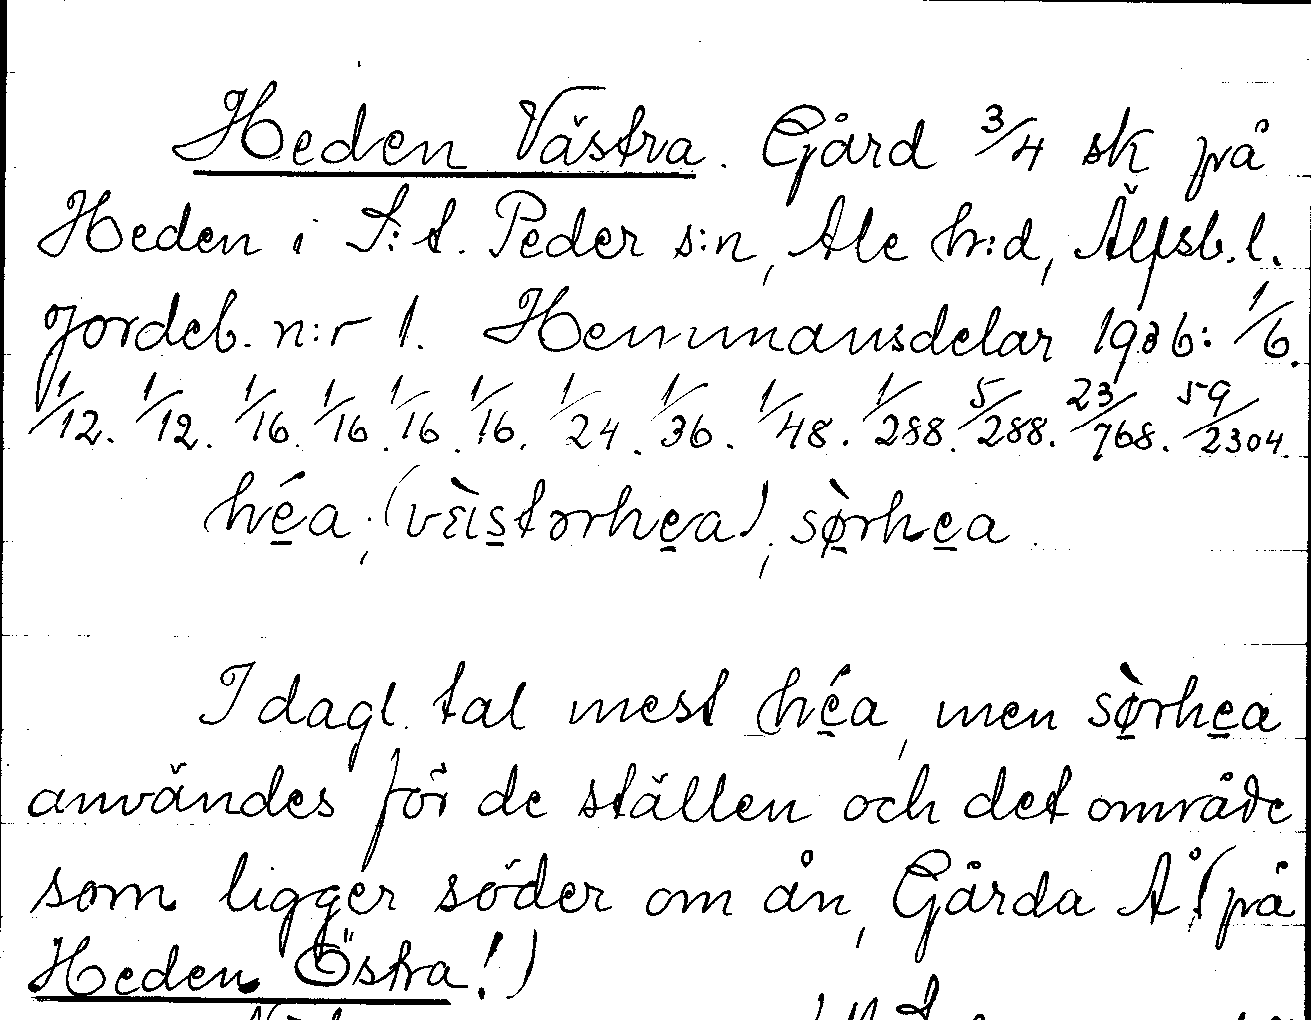 Heden Västra. Gård 3/4 sk på
Heden i S:t. Peder s:n, Ale h:d, Älfsb. l.
Jordeb. n:r 1. Hemmansdelar 1936: 1/6.
1/12. 1/12. 1/16. 1/16. 1/16. 1/16. 1/24. 1/36. 1/48. 1/288. 5/288. 23/768. 59/2304.
hé̠a, (vὲis̠tərhe̠a), sø̠̀rhe̠a
I dagl. tal mest hé̠a, men sø̠̀rhe̠a
användes för de ställen och det område
som ligger söder om ån, Gårda Å! (på
Heden Östra!)